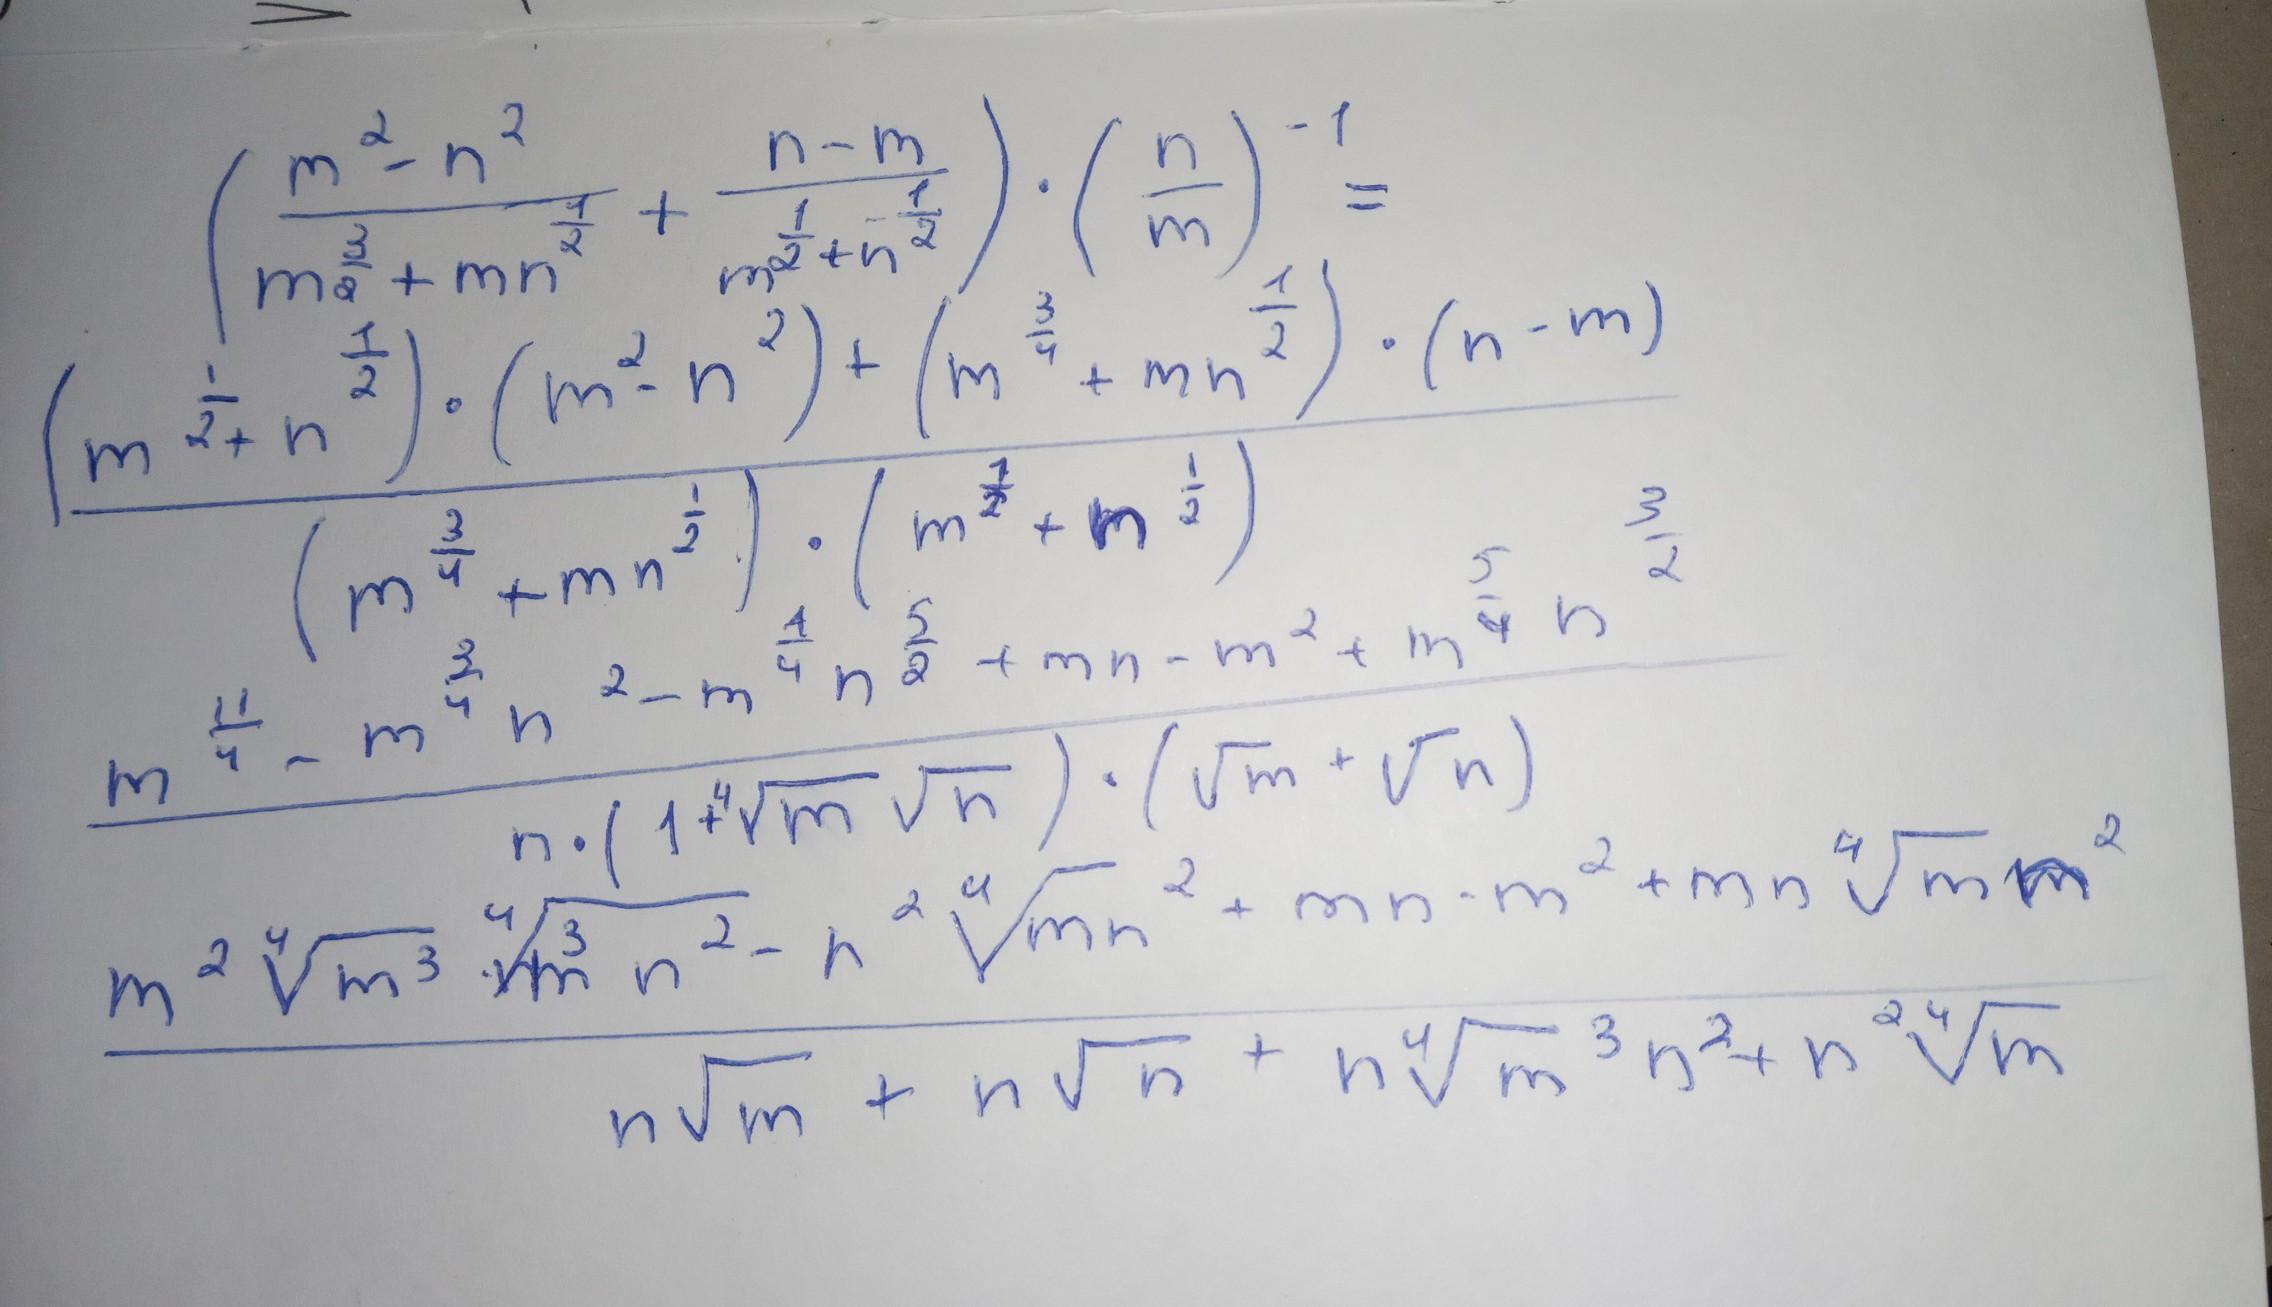 (m² - n² / m^(3/2) + mn^(1/2) + n - m / m^(1/2) + n^(1/2)) · (n/m)^(-1) =
(m^(1/2) + n^(1/2)) · (m² - n²) + (m^(3/4) + mn^(1/2)) · (n - m)
(m^(3/4) + mn^(1/2)) · (m^(1/2) + n^(1/2))
m^(11/4) - m^(3/4) n² - m^(1/4) n^(5/2) + mn - m² + m^(5/4) n^(3/2)
n · (1 + ⁴√m √n) · (√m + √n)
m² ⁴√m³ ⁴√m³ n² - n² ⁴√mn² + mn - m² + mn ⁴√m m²
n√m + n√n + n ⁴√m³ n² + n² ⁴√m